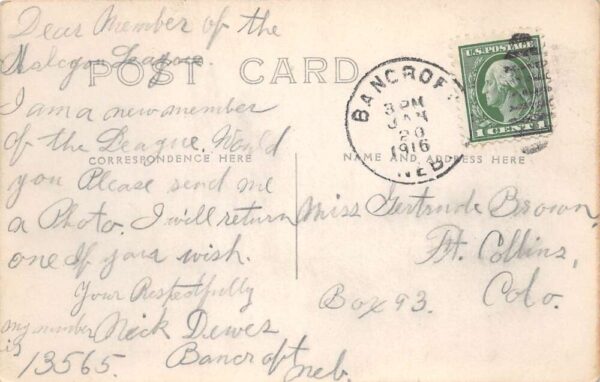 Dear Member of the
Halcyon League.
POST CARD
I am a new member
of the League. Would
CORRESPONDENCE HERE
you Please send me
a Photo. I will return
one If your wish.
Your Respestfully
my number Nick Dewes
is
13565. Bancroft Neb.
BANCROFT
3 PM
JAN
20
1916
NEB.
U.S. POSTAGE
1 CENT 1
NAME AND ADDRESS HERE
Miss Gertrude Brown,
Ft. Collins,
Box 93. Colo.